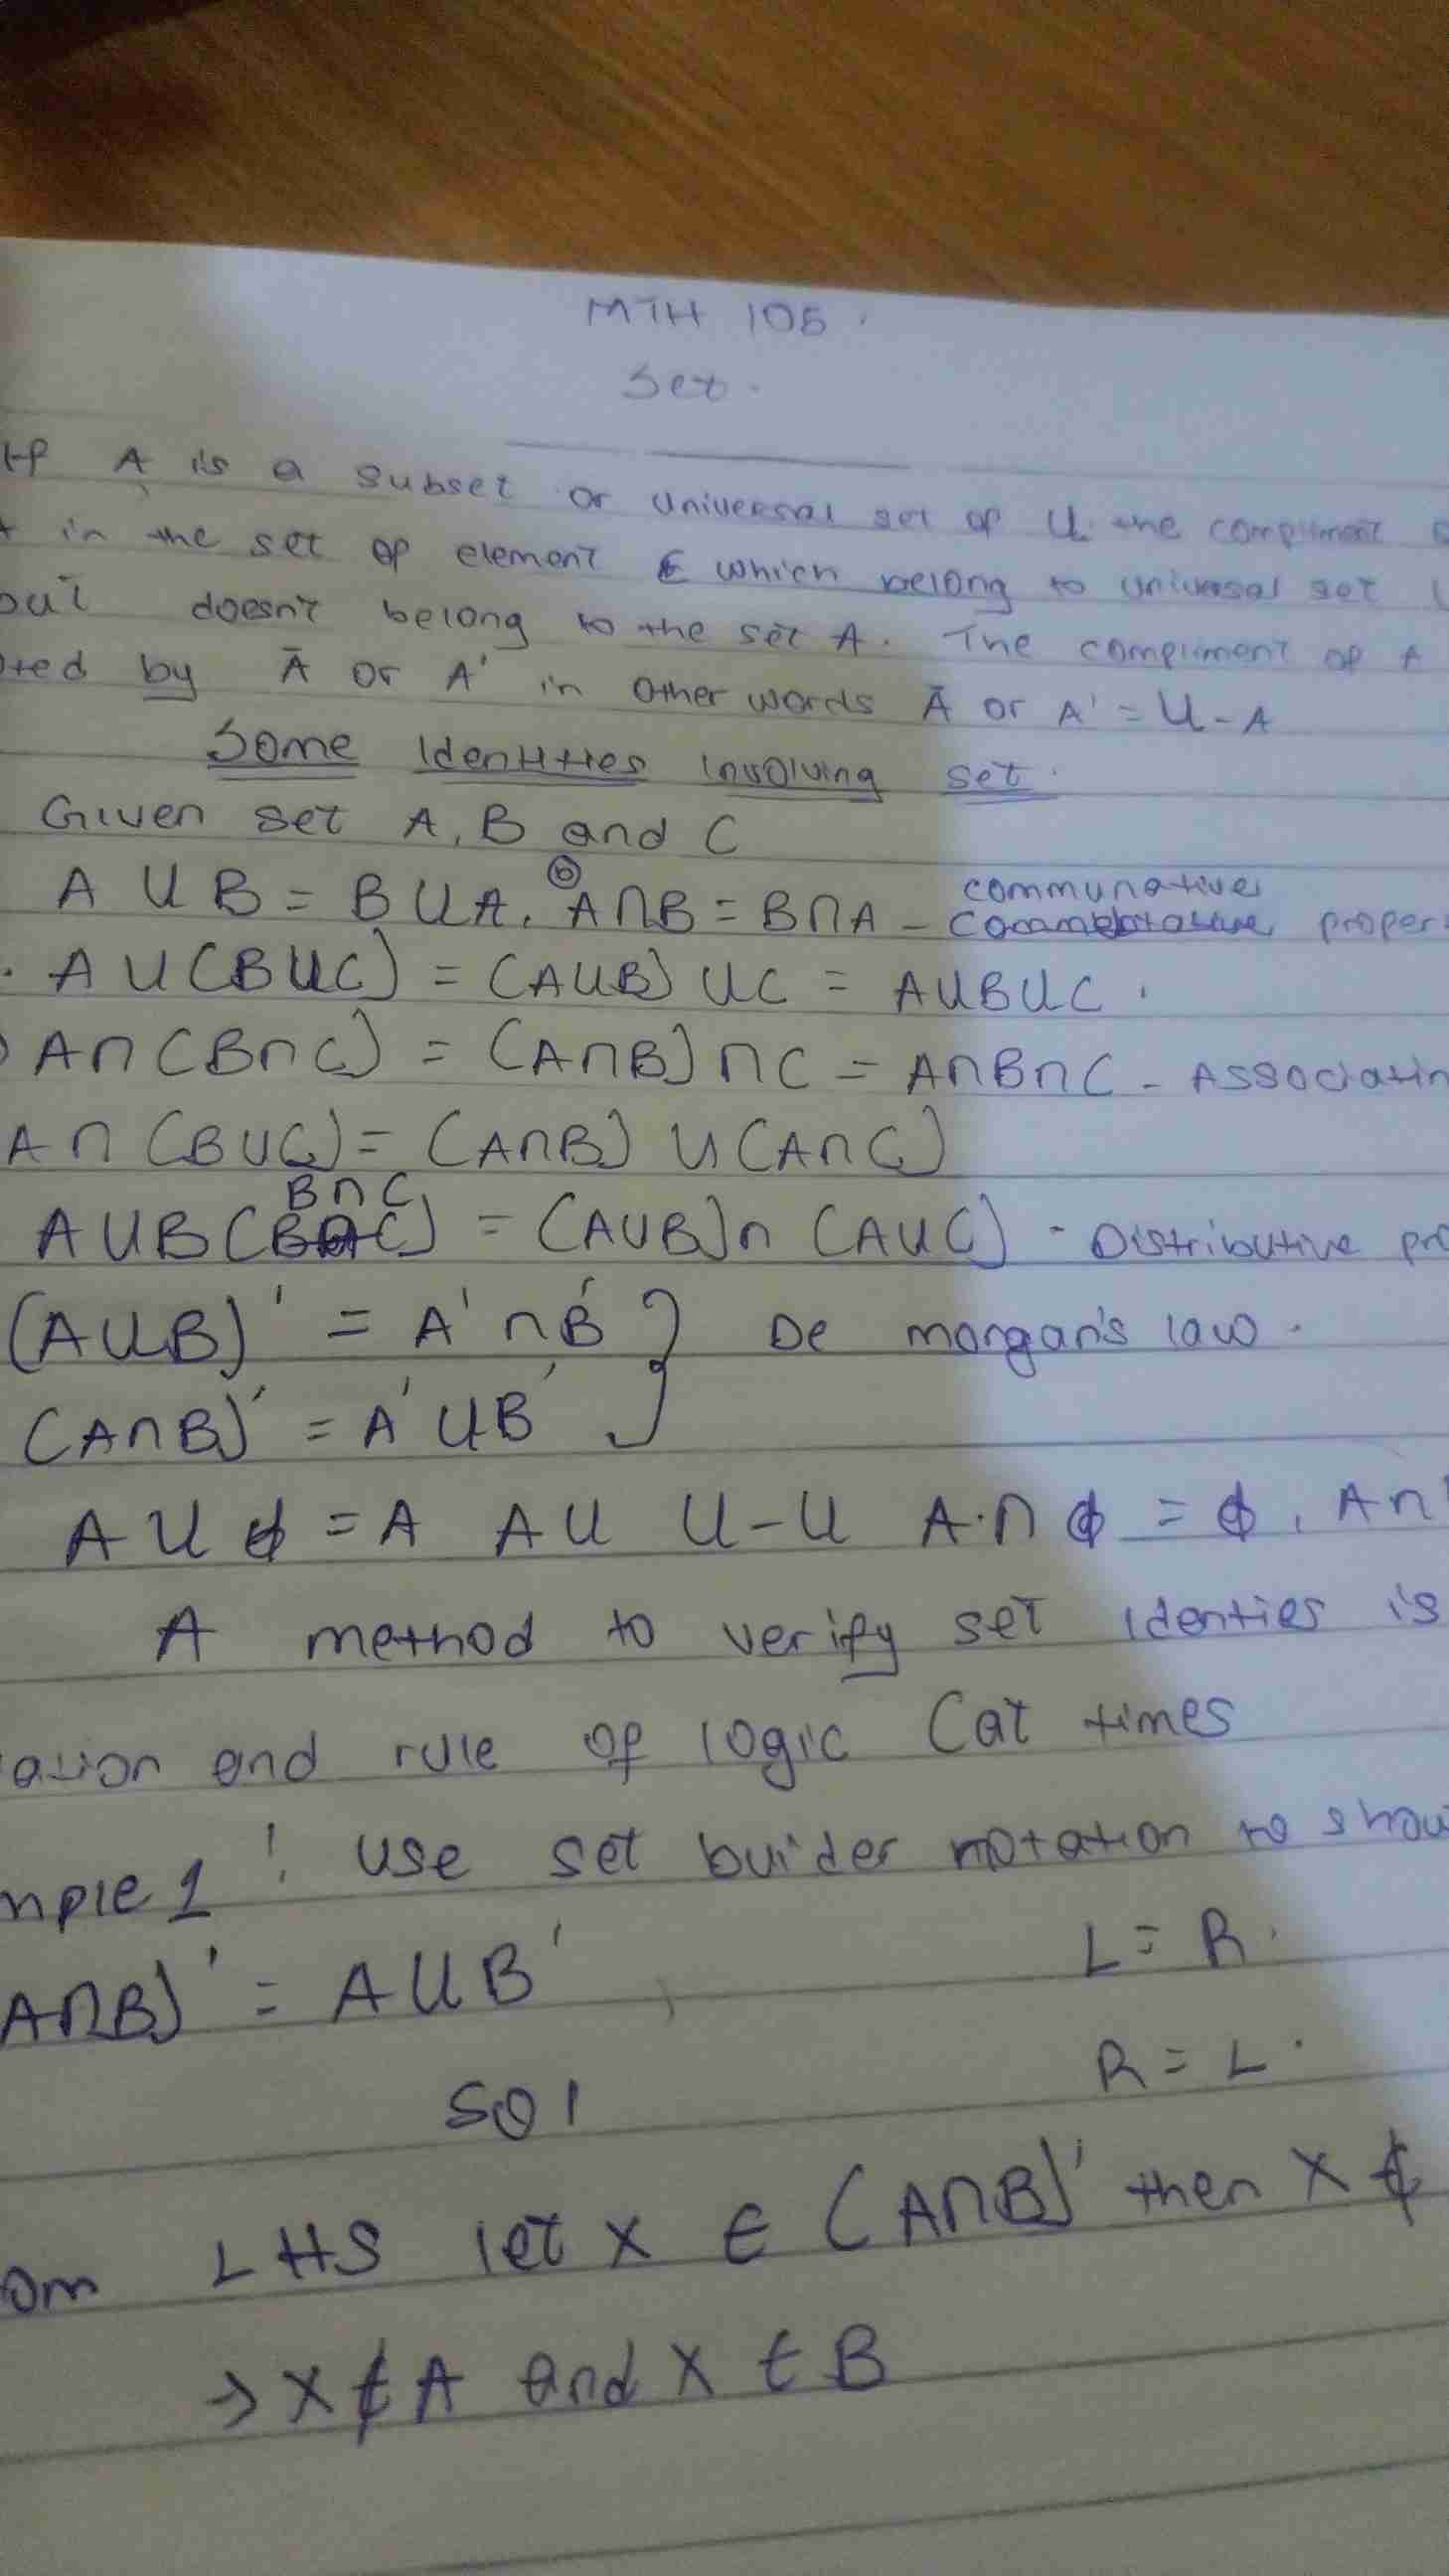 MTH 105.
Set.
If A is a subset or universal set of U. the compliment
in the set of element € which belong to universal set
but doesn't belong to the set A. The compliment of A
oted by Ā or A' in other words Ā or A' = U - A
Some Identities Involving set.
Given set A, B and C
A U B = B U A. ⓑ A ∩ B = B ∩ A - communative proper
A U (B U C) = (A U B) U C = A U B U C.
A ∩ (B ∩ C) = (A ∩ B) ∩ C = A ∩ B ∩ C - Associativ
A ∩ (B U C) = (A ∩ B) U (A ∩ C)
A U B (B ∩ C) = (A U B) ∩ (A U C) - Distributive pro
(A U B)' = A' ∩ B' } De morgan's law.
(A ∩ B)' = A' U B'
A U ϕ = A A U U - U A . ∩ ϕ = ϕ, A ∩
A method to verify set identies is
ation and rule of logic (at times
mple 1: use set buider notation to show
A ∩ B)' = A U B'
L = R.
R = L.
Sol
om LHS let x ∈ (A ∩ B)' then x ∉
→ x ∉ A and x ∈ B